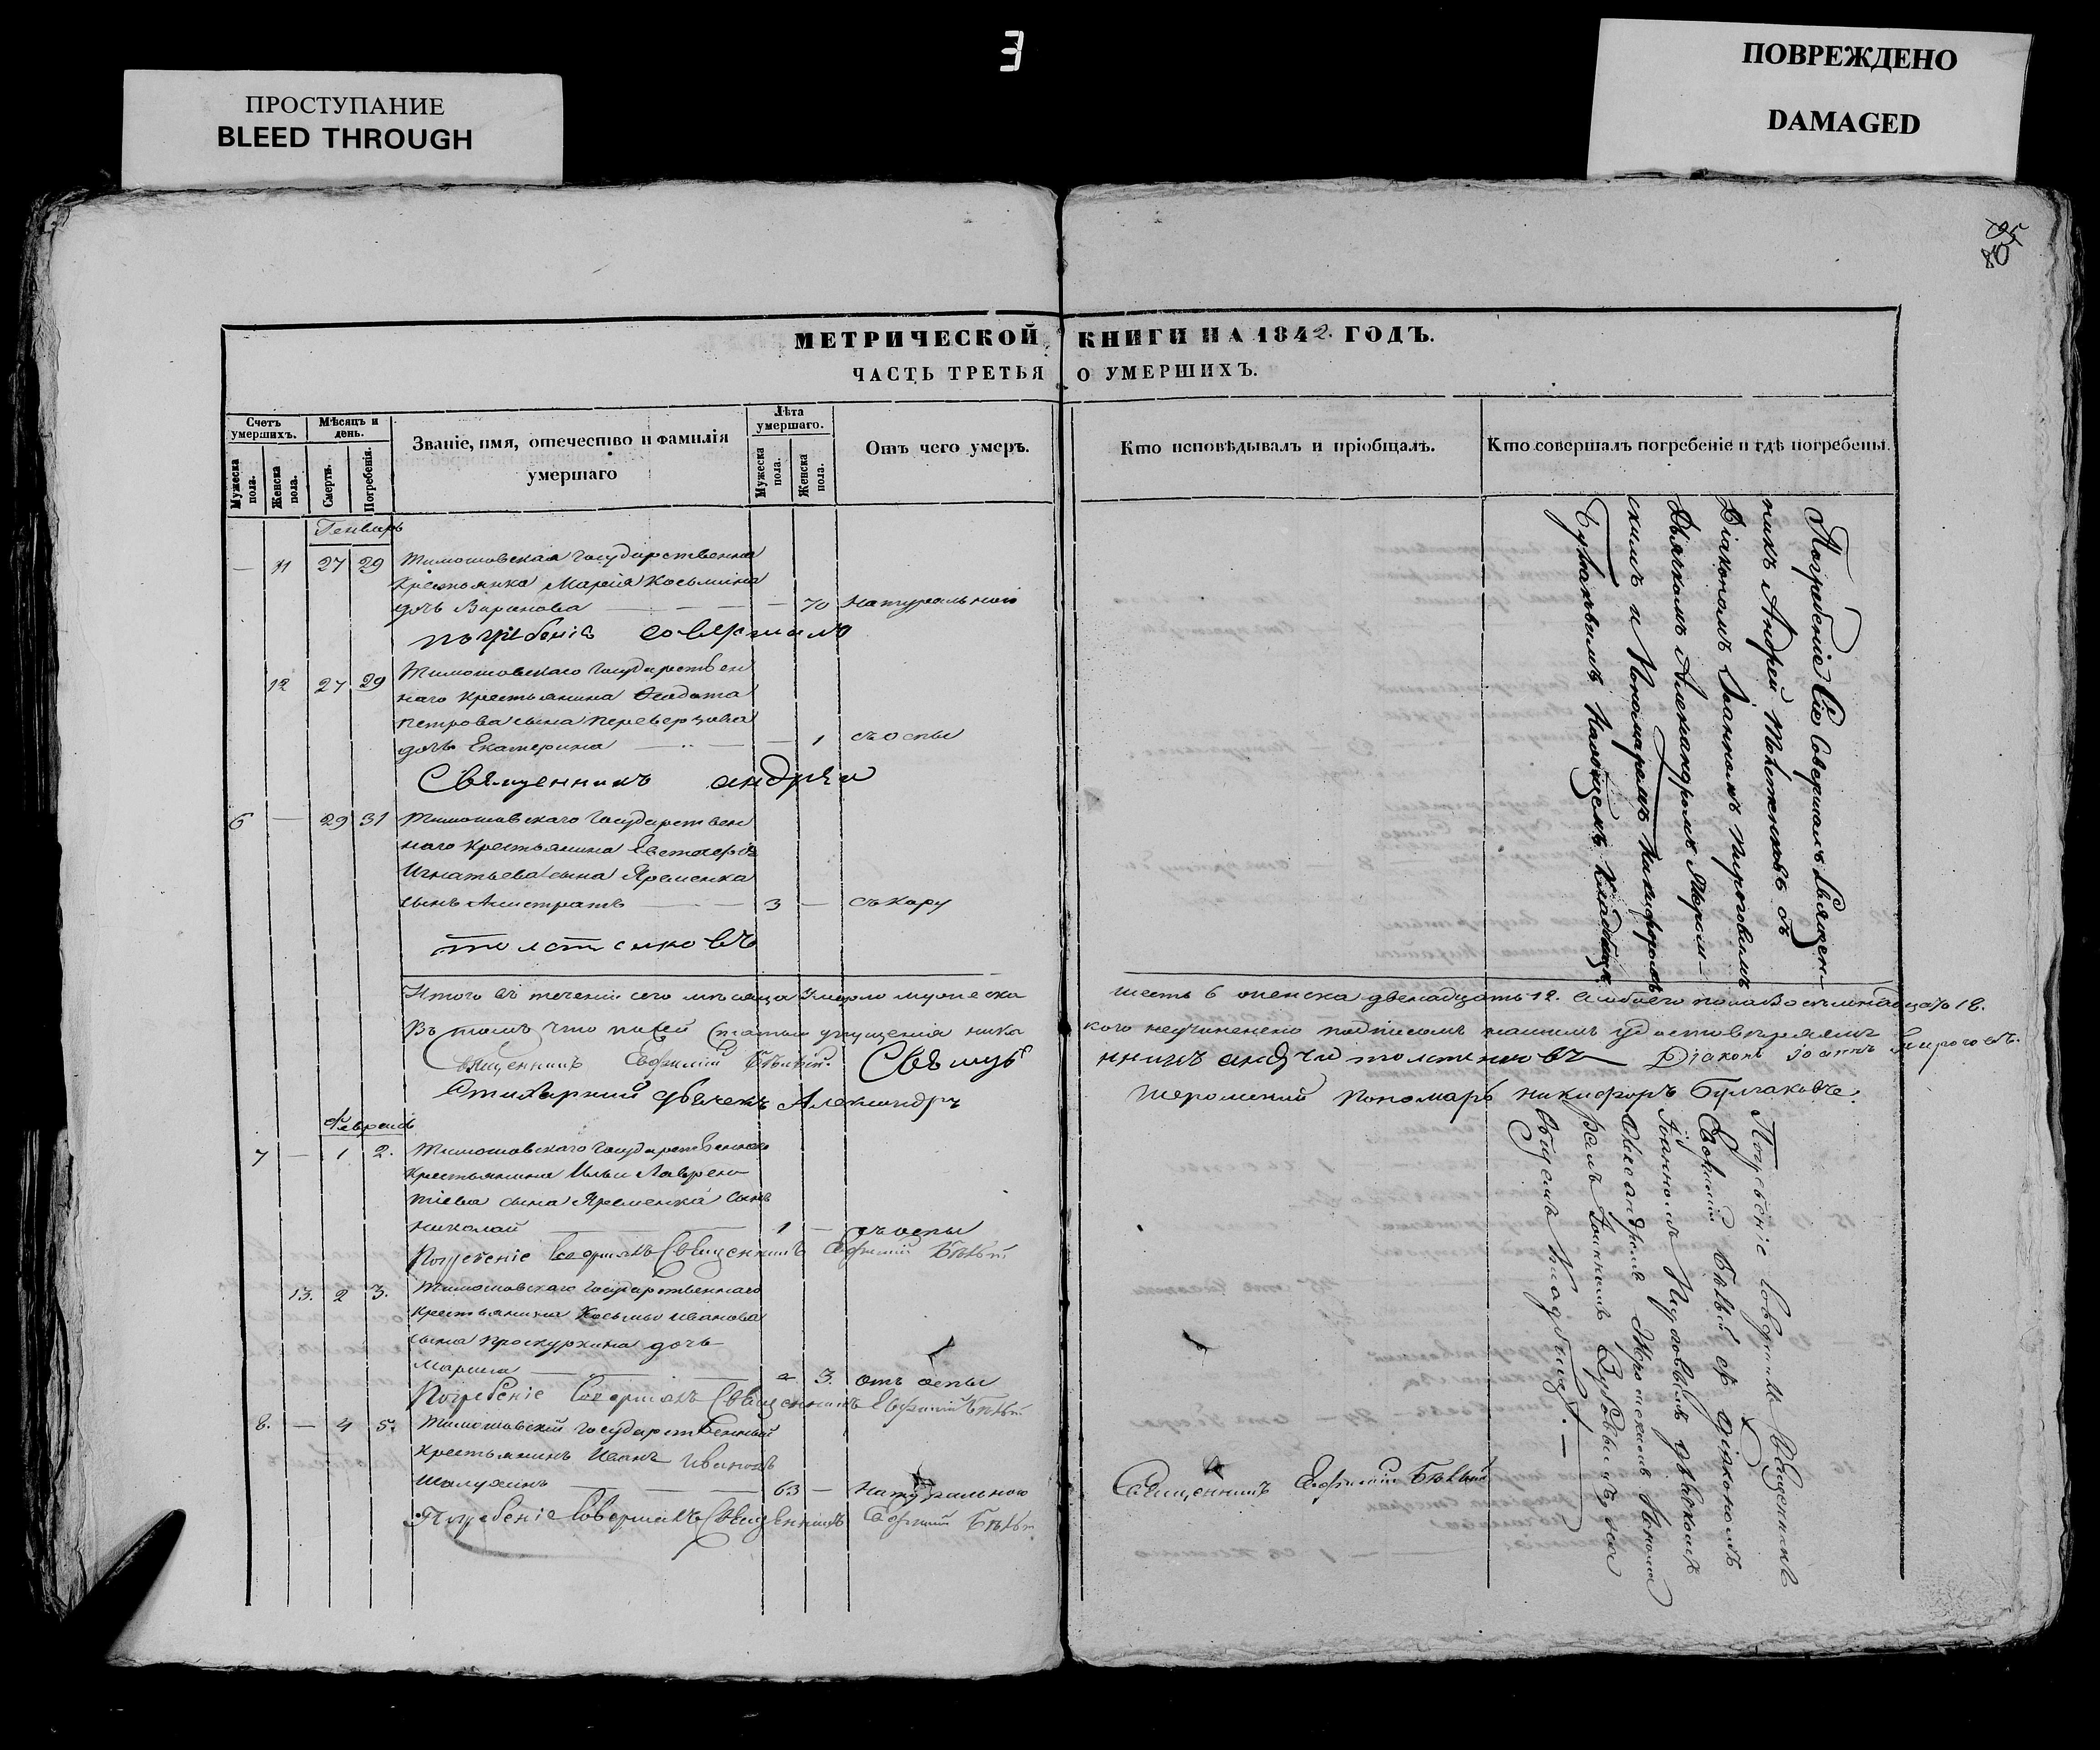 ПРОСТУПАНИЕ
BLEED THROUGH
З
ПОВРЕЖДЕНО
DAMAGED
МЕТРИЧЕСКОЙ КНИГИ НА 1842. ГОДЪ.
ЧАСТЬ ТРЕТЬЯ О УМЕРШИХЪ.
Счетъ умершихъ.
Мужеска пола.
Женска пола.
Мѣсяцъ и день.
Смерть.
Погребенія.
Званіе, имя, отечество и фамилія
умершаго
Лѣта умершаго.
Мужеска пола.
Женска пола.
Отъ чего умеръ.
Кто исповѣдывалъ и пріобщалъ.
Кто совершалъ погребеніе и гдѣ погребены.
Генварь
— 11 27 29 Тимошовская Государственна
Крестьянка Марія Косьмина
дочь — 70 Натуральною
погребеніе совершилъ
12 27 29 Тимошовскаго Государствен
наго Крестьянина Феодота
Петрова сына Переверзева
дочь Екатерина — 1 съ оспы
Священникъ Андрей
6 — 29 31 Тимошовскаго Государствен
наго Крестьянина Евстафія
Игнатьева сына Яременка
сынъ — 3 —
Толстиковъ
Погребеніе Сіе Совершалъ Священ-
никъ Андрей съ
Діакономъ Іоанномъ Пироговымъ
Дьячкомъ Александромъ Яроши-
скимъ и Пономаремъ Никифоромъ
Булгаковымъ на общемъ Кладбище
Итого въ теченіи сего мѣсяца умерло мужеска шесть 6 женска двенадцать 12. а обоего пола восемнадцать 18.
Въ томъ что по сей статьи упущенія ника кого неучиненено подписомъ нашимъ удостовѣряемъ
Священникъ Ефимій Бѣлый. Священникъ Андрей Толстиковъ Діаконъ Іоаннъ Пироговъ.
Стихарный дьячекъ Александръ Пономарь Никифоръ Булгаковъ.
Февраль
7 — 1 2. Тимошовскаго Государственнаго
Крестьянина Ильи Лаврен-
тіева сына Яременка сынъ
Николай — 1 — съ оспы
Погребеніе совершалъ Священникъ Ефимій Бѣлый
13. 2 3. Тимошовскаго Государственнаго
Крестьянина Косьмы Иванова
сына Проскурнина дочь
Марина — 3. отъ оспы
Погребеніе совершалъ Священникъ Ефимій Бѣлый
8. — 4 5. Тимошовскій Государственный
Крестьянинъ Иванъ Ивановъ
— 63 — Натуральною
Погребеніе Совершалъ Священникъ Ефимій Бѣлый
Священникъ Ефимій Бѣлый
Погребеніе совершалъ Священникъ
Ефимій Бѣлый съ Діакономъ
Іоанномъ Пироговымъ дьячкомъ
Александромъ Понома
ремъ на
общемъ Кладбище. —